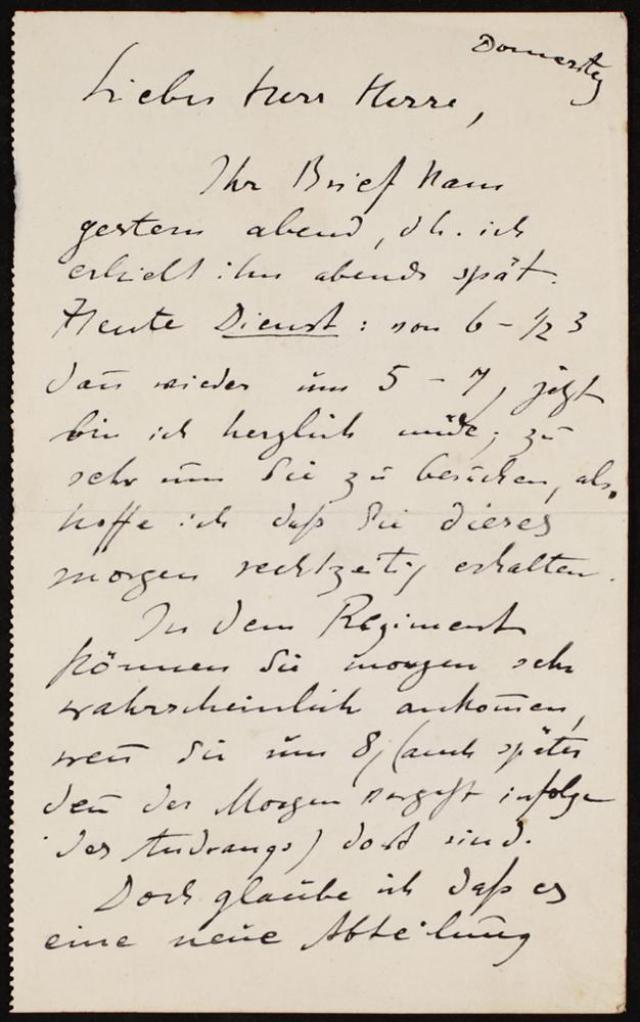 Donnerstag
Lieber Herr Herre,
Ihr Brief kam
gestern abend, d.h. ich
erhielt ihn abends spät.
Heute Dienst: von 6 – ½ 3
dañ wieder um 5 – 7, jetzt
bin ich herzlich müde; zu
sehr um Sie zu besuchen, also
hoffe ich daß Sie dieses
morgen rechtzeitig erhalten.
In dem Regiment
können Sie morgen sehr
wahrscheinlich ankom̄en,
weñ Sie um 8, (auch später
deñ der Morgen vergeht infolge
des Andrangs) dort sind.
Doch glaube ich daß es
eine neue Abteilung